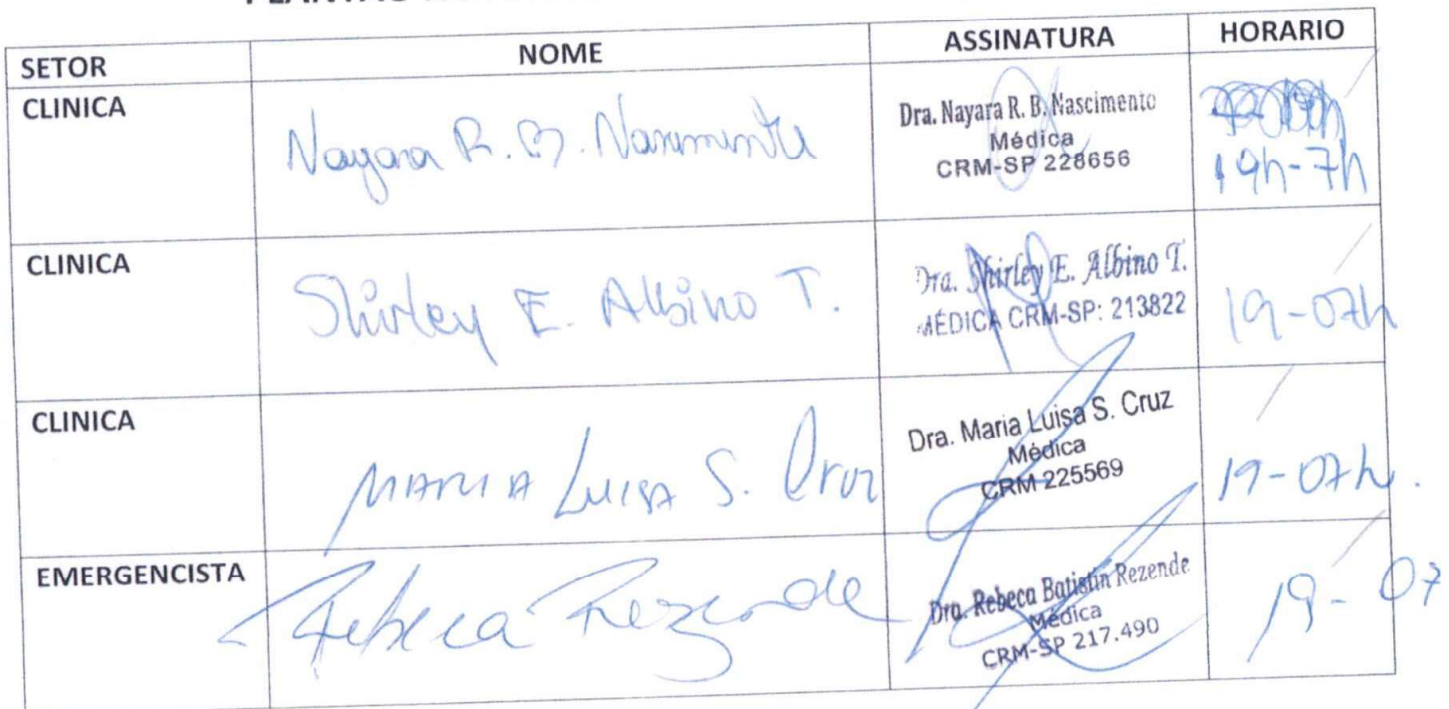 SETOR NOME ASSINATURA HORARIO
CLINICA Nayara R. B. Nascimento Dra. Nayara R. B. Nascimento
Médica
CRM-SP 228656
19h-7h
CLINICA Shirley E. Albino T. Dra. Shirley E. Albino T.
MÉDICA CRM-SP: 213822
19-07h
CLINICA MARIA LUISA S. Cruz Dra. Maria Luisa S. Cruz
Médica
CRM 225569
19-07h.
EMERGENCISTA Rebeca Rezende Dra. Rebeca Batistin Rezende
Médica
CRM-SP 217.490
19-07